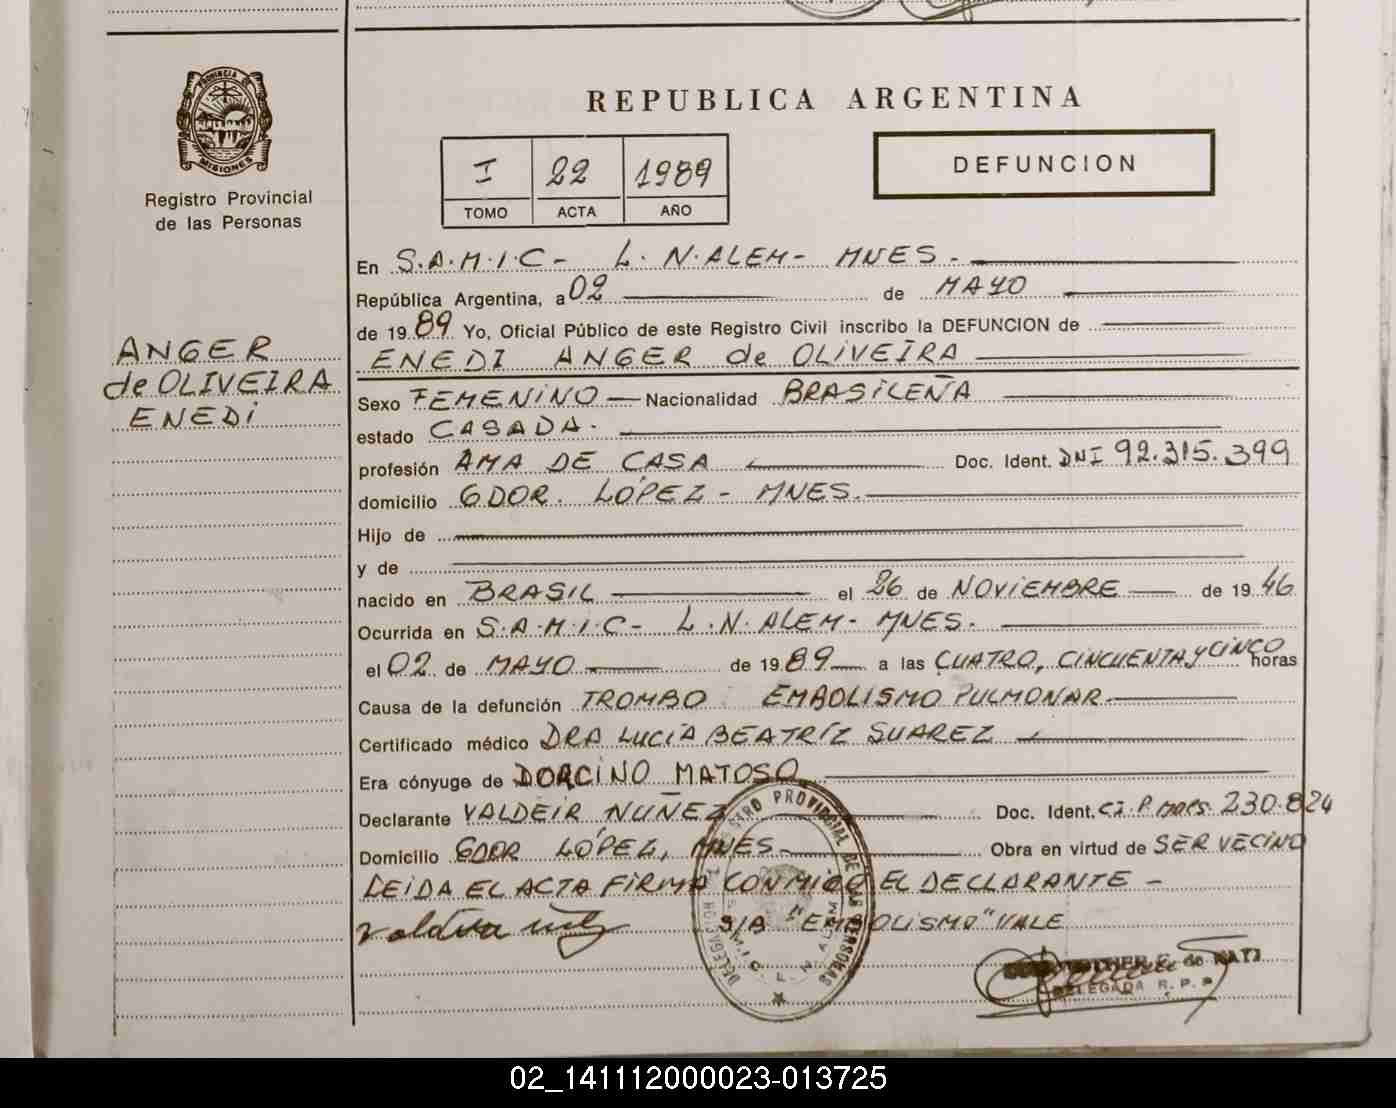 PROVINCIA DE
MISIONES
Registro Provincial
de las Personas
ANGER
de OLIVEIRA
ENEDI
REPUBLICA ARGENTINA
I 22 1989
TOMO ACTA AÑO
DEFUNCION
En S.A.M.I.C- L. N. ALEM- MNES.-
República Argentina, a 02 de MAYO
de 1989 Yo, Oficial Público de este Registro Civil inscribo la DEFUNCION de
ENEDI ANGER de OLIVEIRA
Sexo FEMENINO Nacionalidad BRASILEÑA
estado CASADA.
profesión AMA DE CASA Doc. Ident. DNI 92.315.399
domicilio GDOR. LÓPEZ - MNES.
Hijo de
y de
nacido en BRASIL el 26 de NOVIEMBRE de 1946
Ocurrida en S.A.M.I.C- L.N. ALEM- MNES.
el 02 de MAYO de 1989 a las CUATRO, CINCUENTA Y CINCO horas
Causa de la defunción TROMBO EMBOLISMO PULMONAR
Certificado médico DRA LUCIA BEATRÍZ SUAREZ
Era cónyuge de DORCINO MATOSO
Declarante VALDEIR NUÑEZ Doc. Ident. CI.P. MNES. 230.824
Domicilio GDOR LÓPEZ, MNES Obra en virtud de SER VECINO
LEIDA EL ACTA FIRMA CONMIGO EL DECLARANTE -
S/A "EMBOLISMO" VALE
REGISTRO PROVINCIAL DE LAS PERSONAS
DELEGACION
S.A.M.I.C. L. N. ALEM
de NATI
DELEGADA R. P. P
02_141112000023-013725